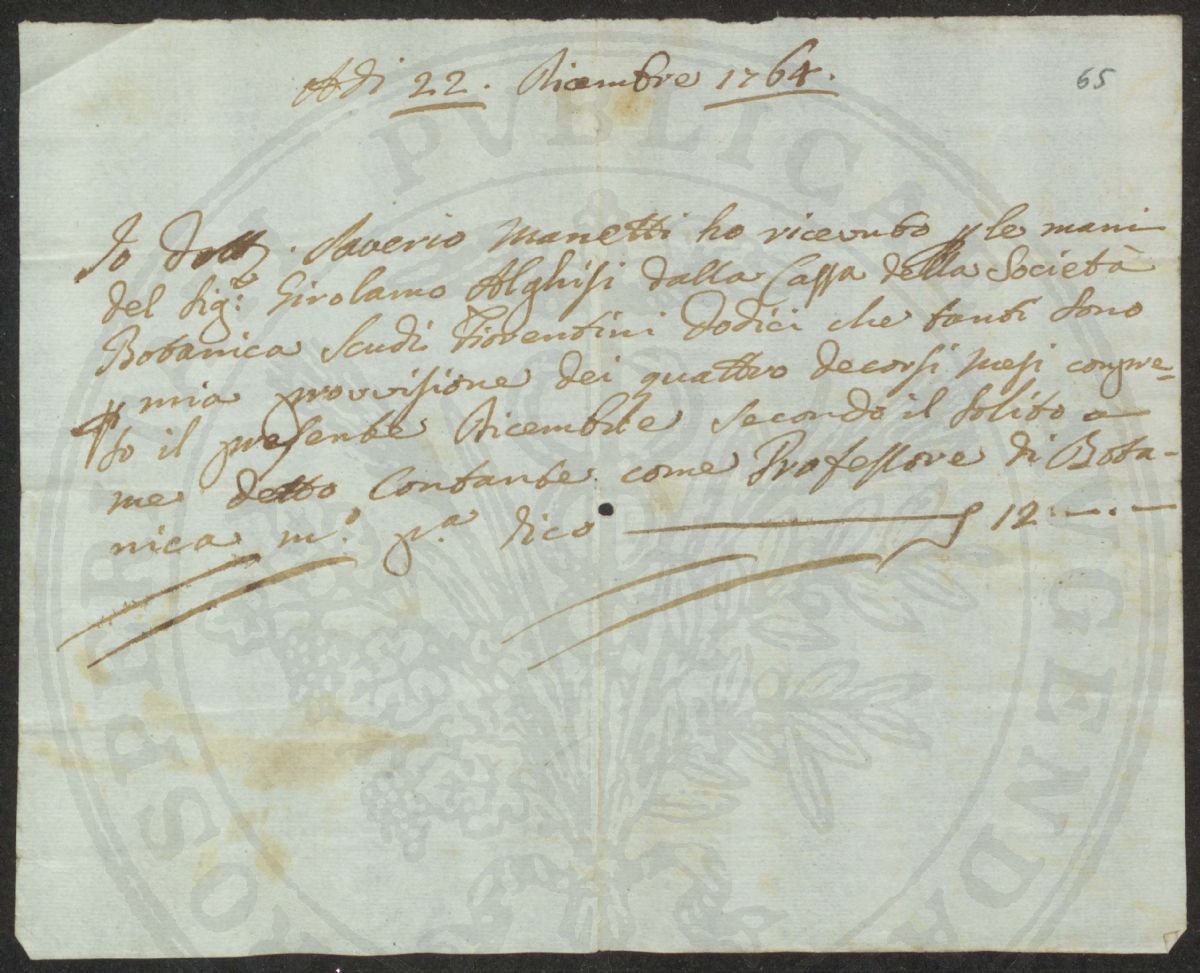 Adi 22. Dicembre 1764.
65
Io Dott. Saverio Manetti ho ricevuto p le mani
del Sig.r Girolamo Alghisi dalla Cassa della Società
Botanica Scudi Fiorentini dodici che tanti sono
p mia provvisione dei quattro decorsi Mesi compre-
so il presente Dicembre secondo il solito a
me detto Contante come Professore di Bota-
nica m.o p.a dico 12.—.—
PROSPERITATI PVBLICAE AVGENDAE